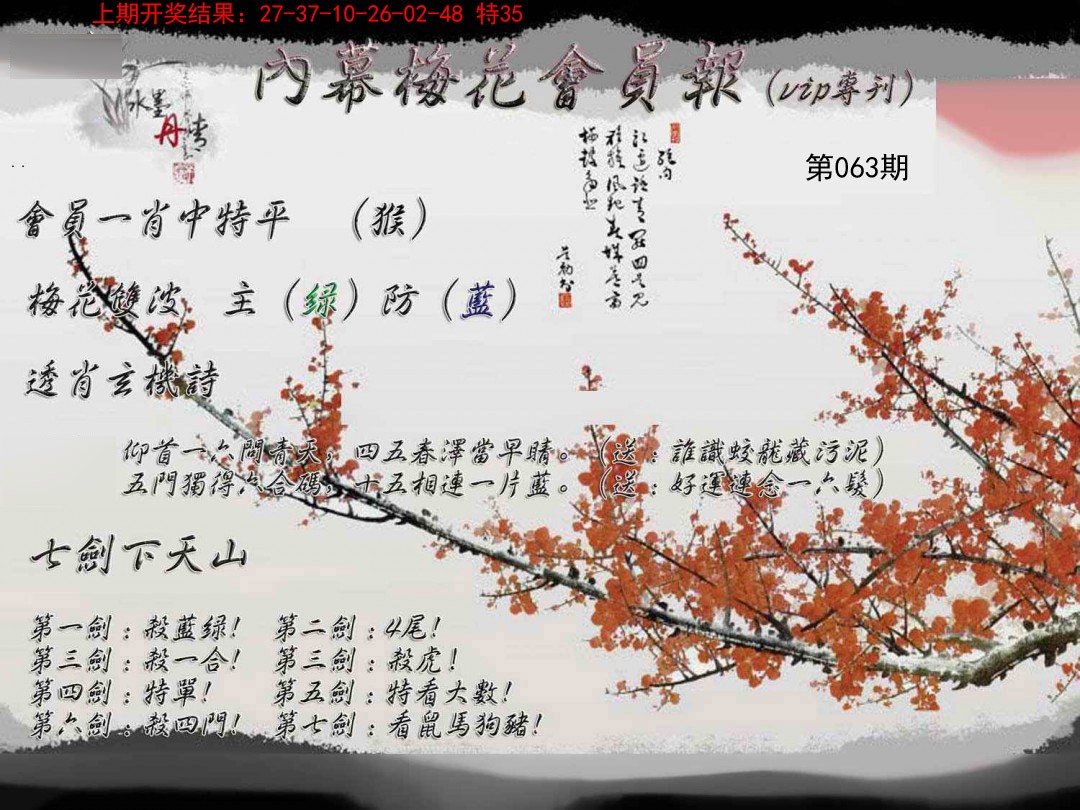 上期开奖结果：27-37-10-26-02-48 特35
內幕梅花會員報（vip專刊）
水墨
丹青
第063期
會員一肖中特平　（猴）
梅花雙波　主（綠）防（藍）
透肖玄機詩
仰首一六問青天，四五春澤當早晴。（送：誰識蛟龍藏污泥）
五門獨得六合碼，十五相連一片藍。（送：好運連念一六髮）
七劍下天山
第一劍：殺藍绿！　第二劍：4尾！
第三劍：殺一合！　第三劍：殺虎！
第四劍：特單！　第五劍：特看大數！
第六劍：殺四門！　第七劍：看鼠馬狗豬！